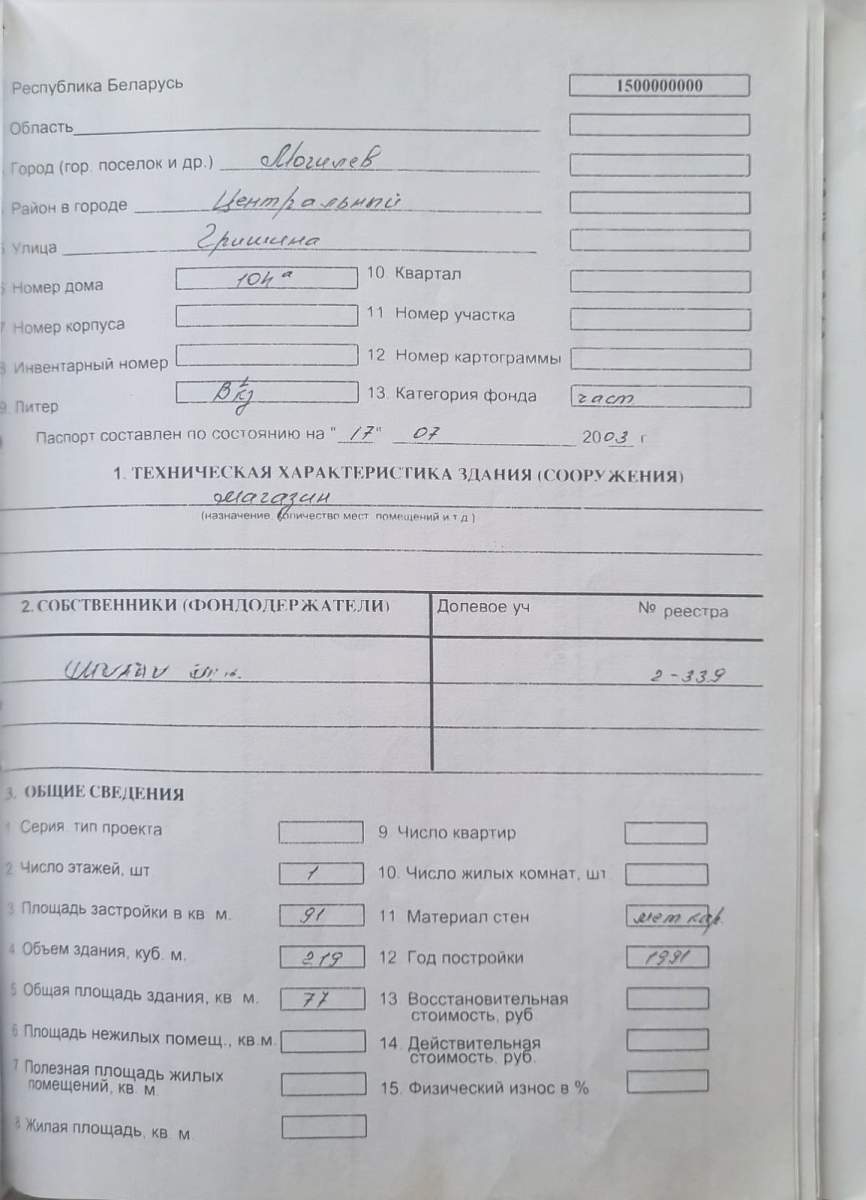 Республика Беларусь 1500000000
Область
Город (гор. поселок и др.) Могилев
Район в городе Центральный
Улица Гришина
Номер дома 104а 10. Квартал
7 Номер корпуса 11 Номер участка
8 Инвентарный номер 12 Номер картограммы
9. Литер 13. Категория фонда част
Паспорт составлен по состоянию на "17" 07 2003 г
1. ТЕХНИЧЕСКАЯ ХАРАКТЕРИСТИКА ЗДАНИЯ (СООРУЖЕНИЯ)
магазин
(назначение, количество мест, помещений и т.д.)
2. СОБСТВЕННИКИ (ФОНДОДЕРЖАТЕЛИ) Долевое уч № реестра
2-339
3. ОБЩИЕ СВЕДЕНИЯ
1 Серия, тип проекта 9 Число квартир
2 Число этажей, шт 1 10. Число жилых комнат, шт
3 Площадь застройки в кв. м. 91 11 Материал стен мет кар.
4 Объем здания, куб. м. 219 12 Год постройки 1991
5 Общая площадь здания, кв. м. 77 13 Восстановительная
стоимость, руб
6 Площадь нежилых помещ., кв.м. 14. Действительная
стоимость, руб.
7 Полезная площадь жилых
помещений, кв. м. 15. Физический износ в %
8 Жилая площадь, кв. м.